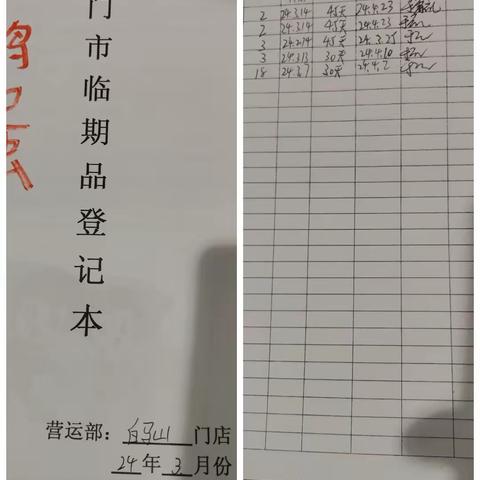 门市临期品登记本
营运部：白马山门店
24年3月份
2 24.3.14 45天 24.4.23
2 24.3.14 45天 24.4.23
3 24.2.14 45天 24.3.25
3 24.3.13 30天 24.4.10
18 24.3.7 30天 24.4.2